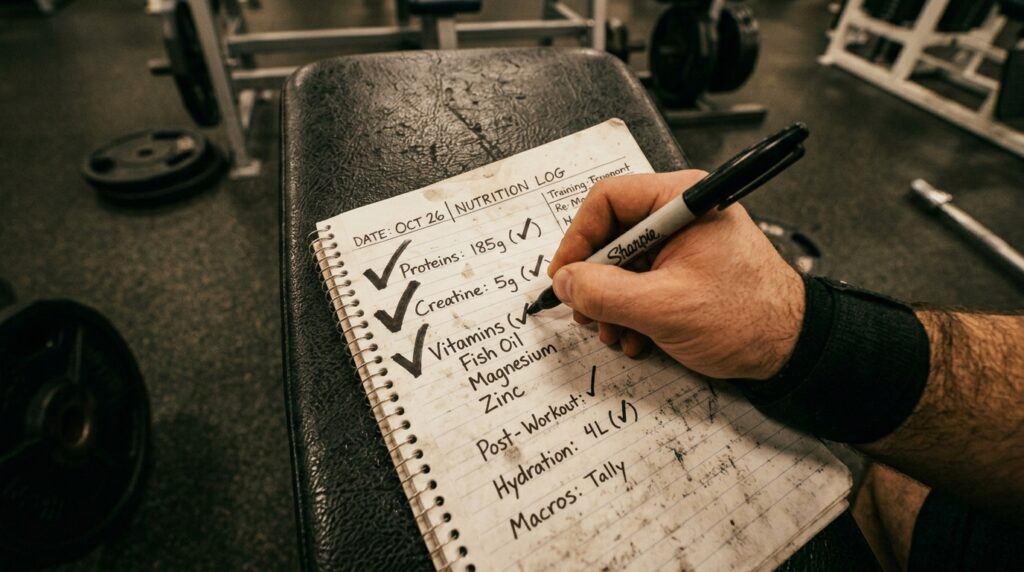 DATE: OCT 26 NUTRITION LOG
Training:
Re:
Proteins: 185g (✓)
Creatine: 5g (✓)
Vitamins (✓
Fish Oil
Magnesium
Zinc
Post-Workout: ✓
Hydration: 4L (✓)
Macros: Tally
Sharpie